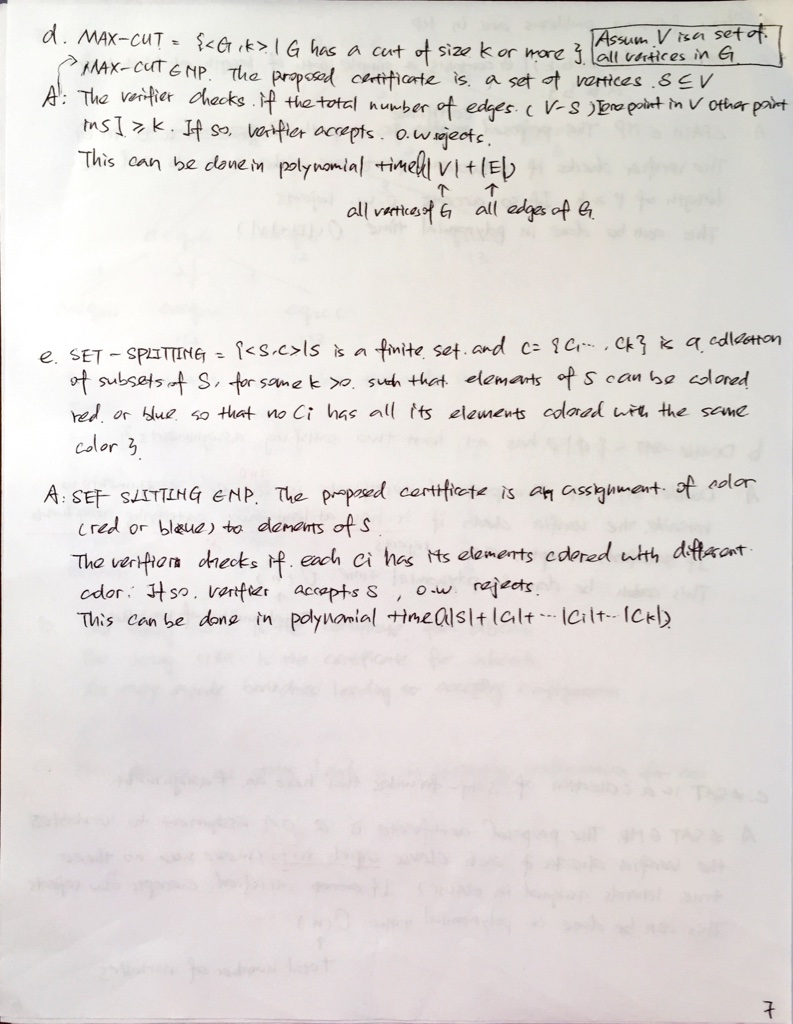 d. MAX-CUT = {<G,k> | G has a cut of size k or more}. Assum V is a set of all vertices in G
MAX-CUT ∈ NP. The proposed certificate is a set of vertices. S ⊆ V
A: The verifier checks if the total number of edges. (V-S) [one point in V other point
in S] ≥ k. If so, verifier accepts. o.w rejects.
This can be done in polynomial time O(|V| + |E|)
↑ ↑
all vertices of G all edges of G.
e. SET-SPLITTING = {<S,C> | S is a finite set. and C = {C1..., Ck} is a collection
of subsets of S, for some k >0. such that elements of S can be colored
red. or blue. so that no Ci has all its elements colored with the same
color }.
A: SET SLITTING ∈ NP. The proposed certificate is an assignment. of color
(red or blue) to elements of S
The verifier checks if. each Ci has its elements colored with different.
color. If so. verifier accepts S, o.w. rejects.
This can be done in polynomial time O(|S| + |C1| + ... |Ci| + .. |Ck|)
7